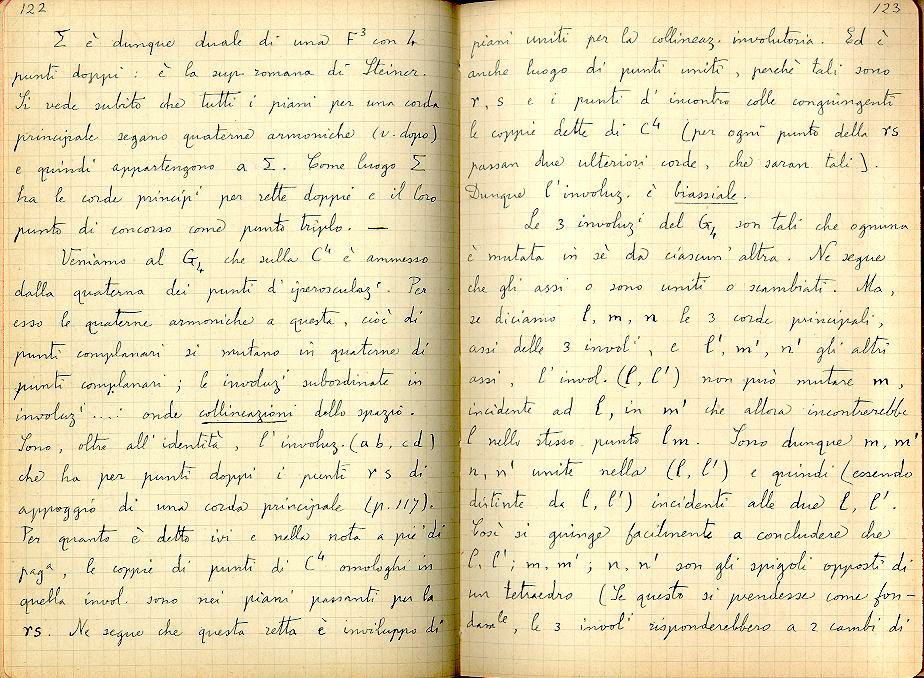 122
Σ è dunque duale di una F³ con 4
punti doppi: è la sup. romana di Steiner.
Si vede subito che tutti i piani per una corda
principale segano quaterne armoniche (v. dopo)
e quindi appartengono a Σ. Come luogo Σ
ha le corde principⁱ per rette doppie e il loro
punto di concorso come punto triplo. —
Veniamo al G₄ che sulla C⁴ è ammesso
dalla quaterna dei punti d'iperosculazⁱ. Per
esso le quaterne armoniche a questa, cioè di
punti complanari si mutano in quaterne di
punti complanari; le involuzⁱ subordinate in
involuzⁱ ...: onde collineazioni dello spazio.
Sono, oltre all'identità, l'involuz. (ab, cd)
che ha per punti doppi i punti r s di
appoggio di una corda principale (p. 117).
Per quanto è detto ivi e nella nota a piè di
pagᵃ, le coppie di punti di C⁴ omologhi in
quella invol. sono nei piani passanti per la
rs. Ne segue che questa retta è inviluppo di
123
piani uniti per la collineaz. involutoria. Ed è
anche luogo di punti uniti, perchè tali sono
r, s e i punti d'incontro colle congiungenti
le coppie dette di C⁴ (per ogni punto della rs
passan due ulteriori corde, che saran tali).
Dunque l'involuz. è biassiale.
Le 3 involuzⁱ del G₄ son tali che ognuna
è mutata in sè da ciascun'altra. Ne segue
che gli assi o sono uniti o scambiati. Ma,
se diciamo l, m, n le 3 corde principali,
assi delle 3 involⁱ, e l', m', n' gli altri
assi, l'invol. (l, l') non può mutare m,
incidente ad l, in m' che allora incontrerebbe
l nello stesso punto lm. Sono dunque m, m'
n, n' unite nella (l, l') e quindi (essendo
distinte da l, l') incidenti alle due l, l'.
Così si giunge facilmente a concludere che
l, l'; m, m'; n, n' son gli spigoli opposti di
un tetraedro (Se questo si prendesse come fon-
damˡᵉ, le 3 involⁱ risponderebbero a 2 cambi di